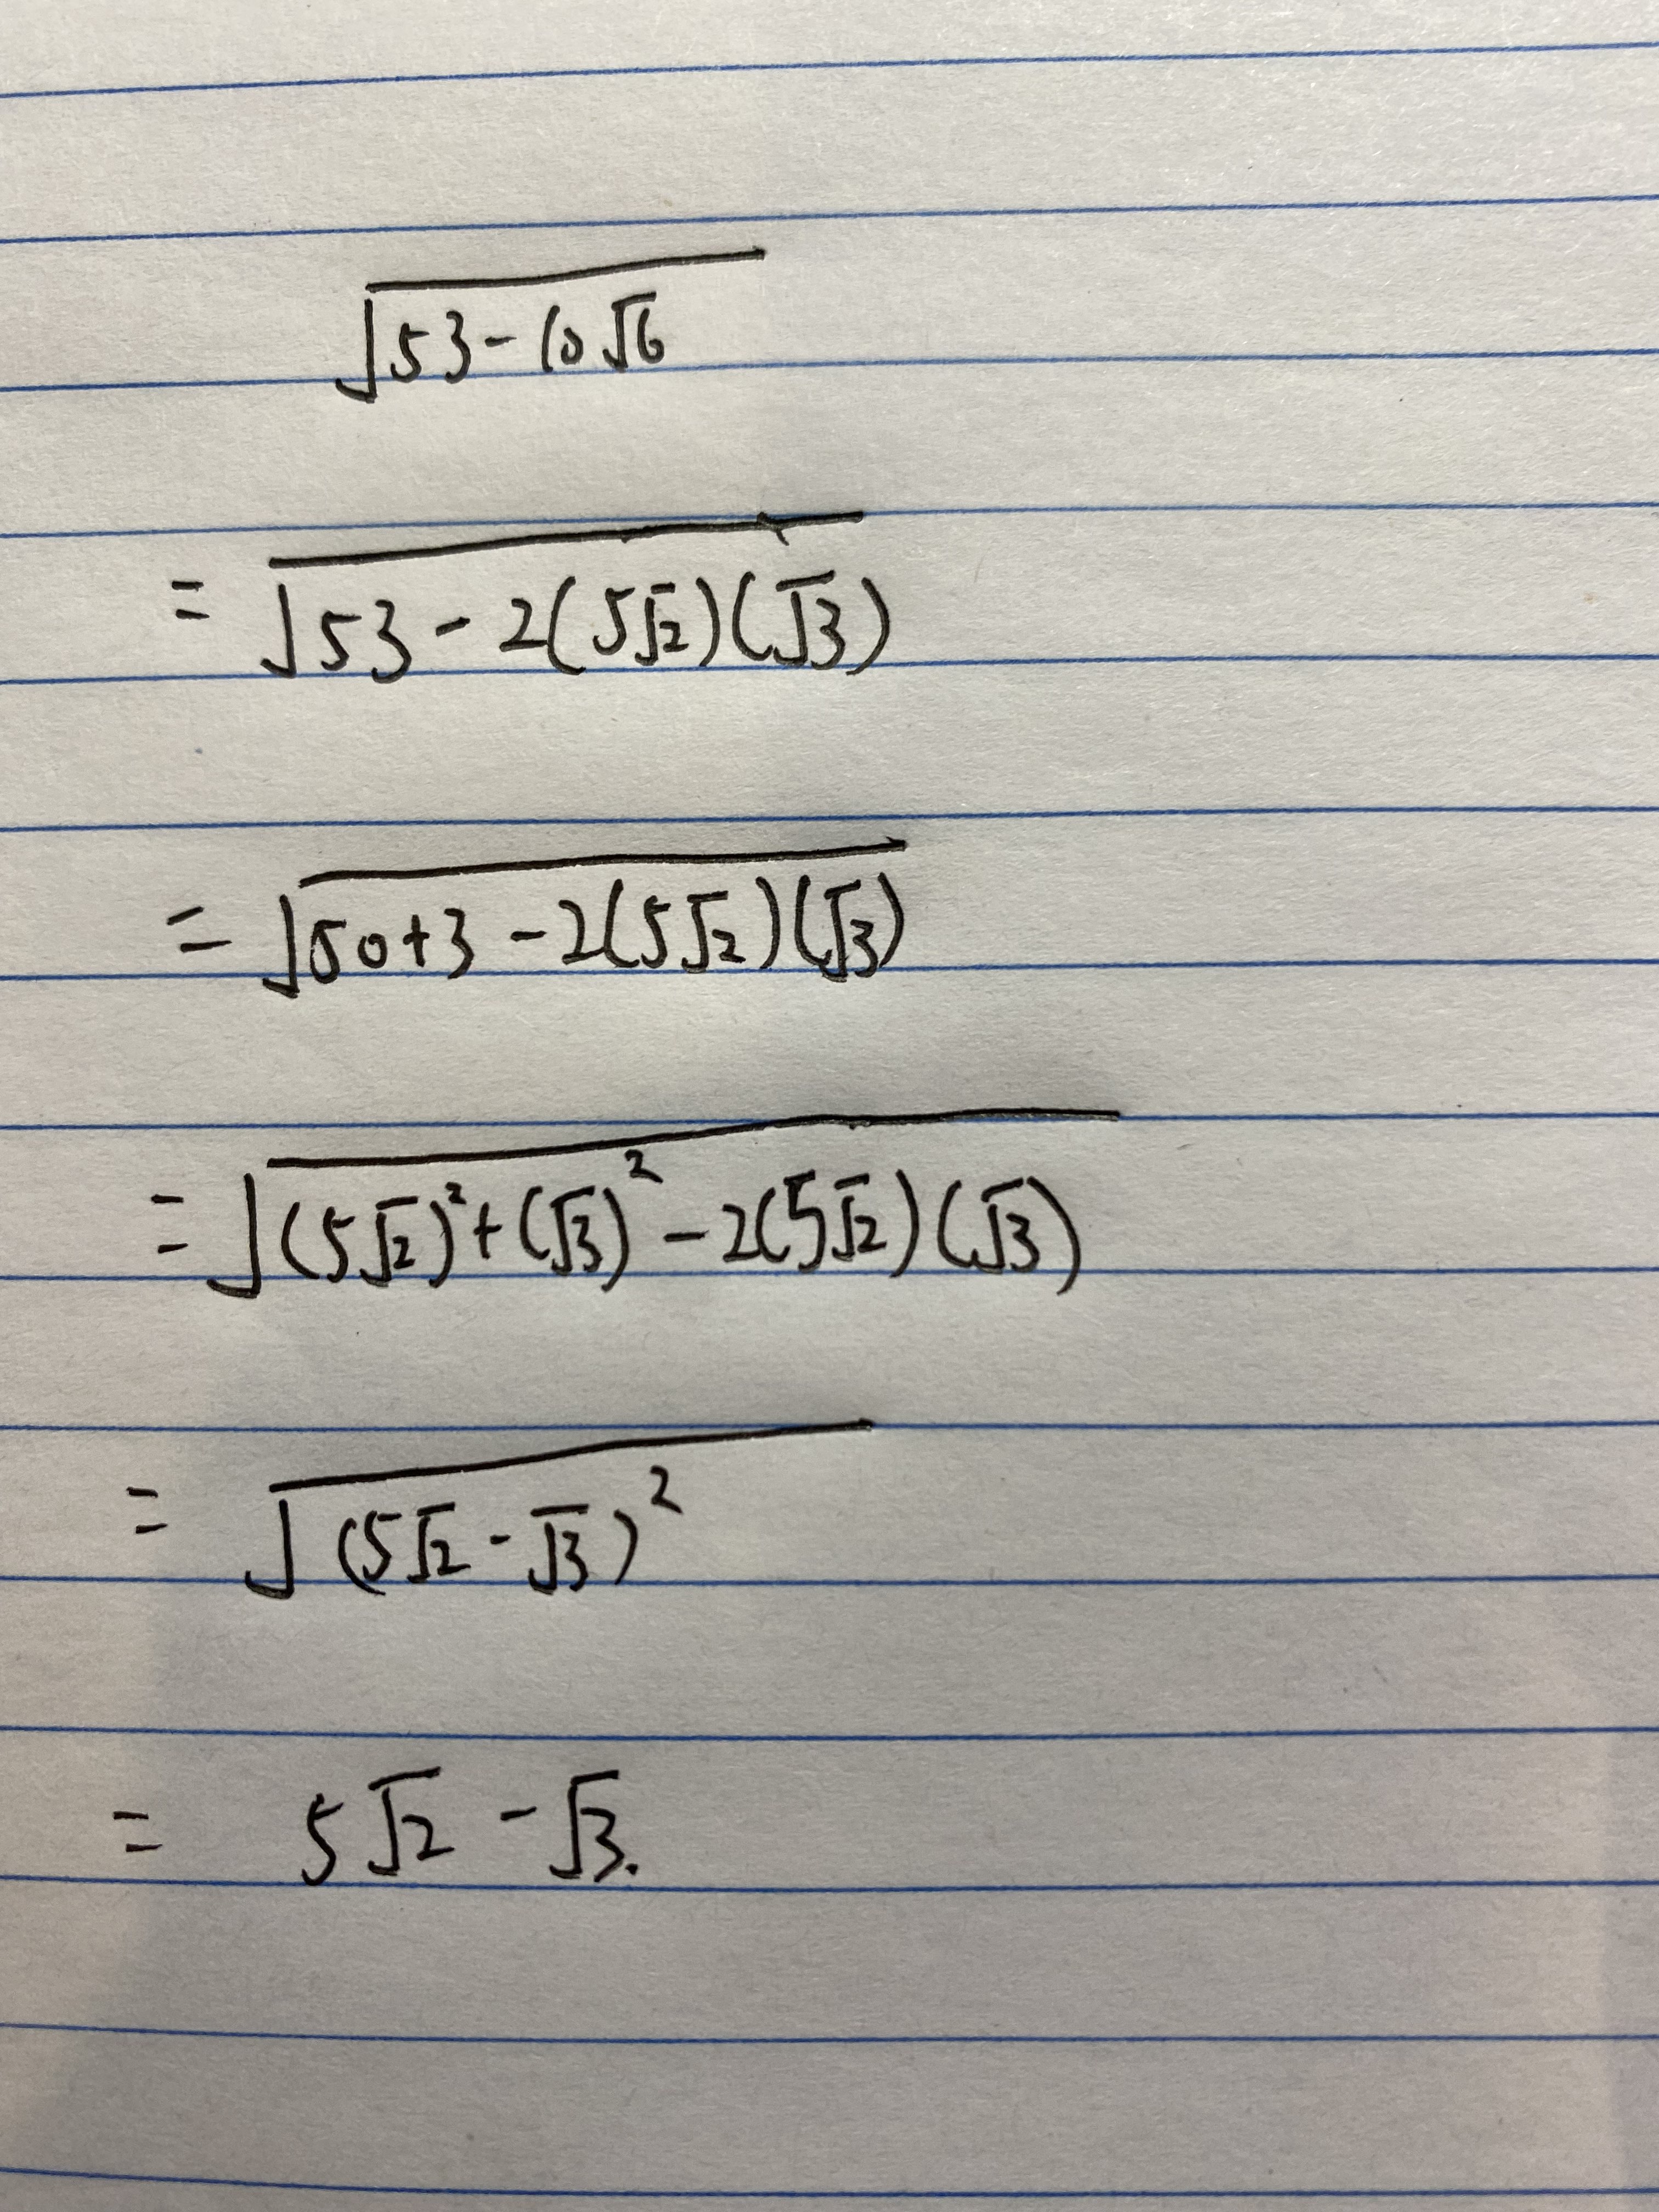 √(53-10√6)
= √(53-2(5√2)(√3))
= √(50+3-2(5√2)(√3))
= √((5√2)²+(√3)²-2(5√2)(√3))
= √((5√2-√3)²)
= 5√2-√3.